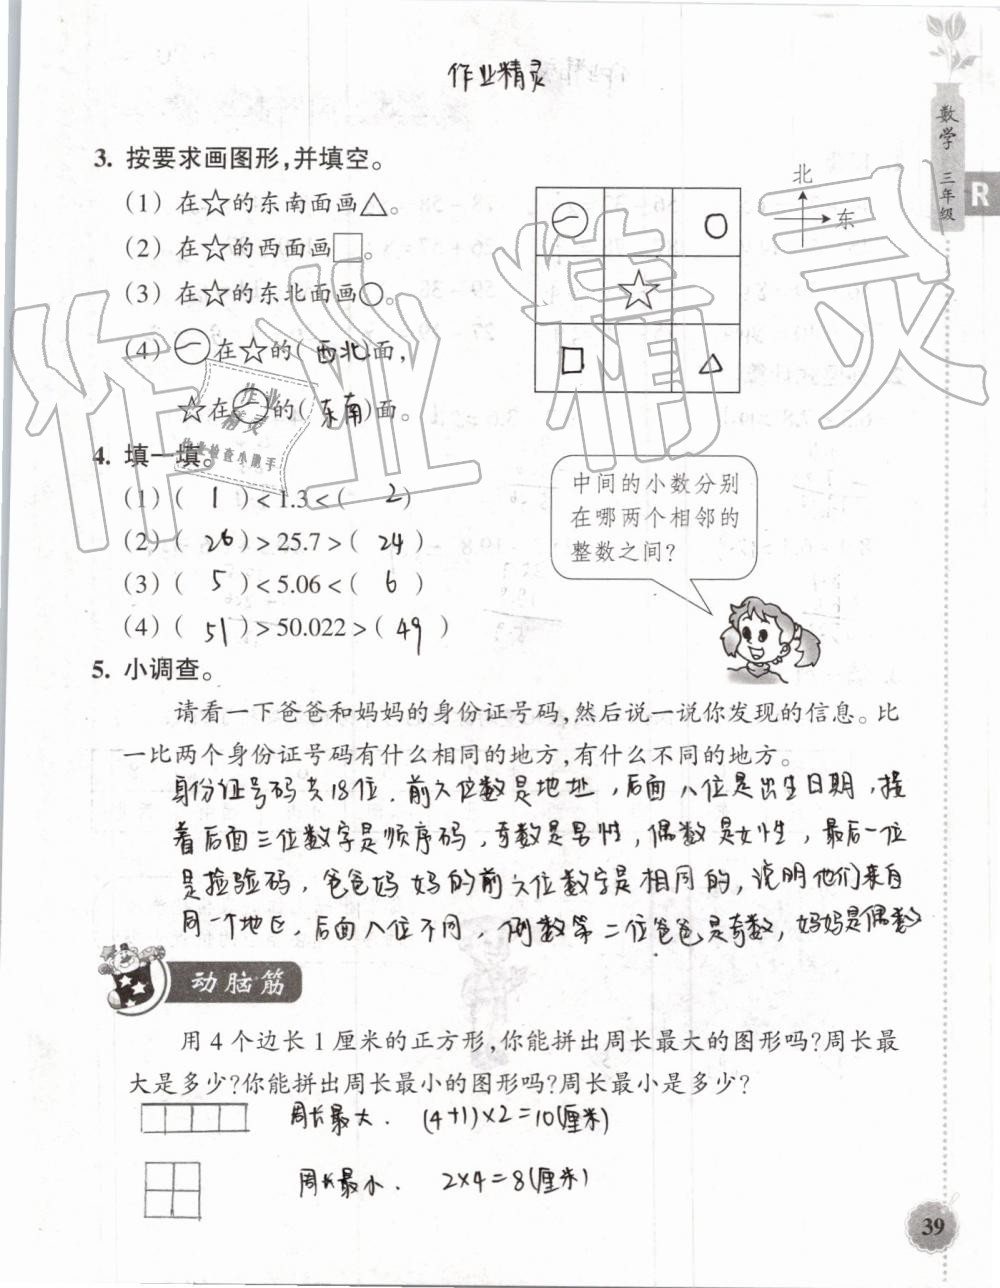 作业精灵
数学 三年级
R
3. 按要求画图形,并填空。
(1) 在☆的东南面画△。
(2) 在☆的西面画□。
(3) 在☆的东北面画○。
(4) ㊀在☆的(西北)面,
☆在㊀的(东南)面。
北
东
4. 填一填。
(1) ( 1 )<1.3<( 2 )
(2) ( 26 )>25.7>( 24 )
(3) ( 5 )<5.06<( 6 )
(4) ( 51 )>50.022>( 49 )
中间的小数分别
在哪两个相邻的
整数之间?
5. 小调查。
请看一下爸爸和妈妈的身份证号码,然后说一说你发现的信息。比
一比两个身份证号码有什么相同的地方,有什么不同的地方。
身份证号码共18位.前六位数是地址,后面八位是出生日期,接
着后面三位数字是顺序码,奇数是男性,偶数是女性,最后一位
是捡验码,爸爸妈妈的前六位数字是相同的,说明他们来自
同一个地区,后面八位不同,倒数第二位爸爸是奇数,妈妈是偶数
动脑筋
用4个边长1厘米的正方形,你能拼出周长最大的图形吗?周长最
大是多少?你能拼出周长最小的图形吗?周长最小是多少?
周长最大. (4+1)×2=10(厘米)
周长最小. 2×4=8(厘米)
39
作业精灵
作业
精灵
作业检查小助手